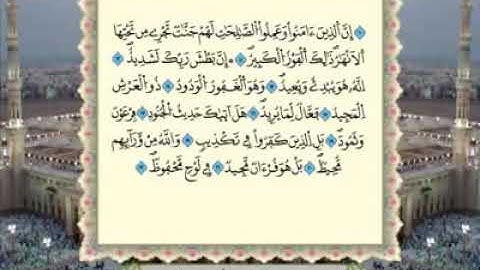 إِنَّ الَّذِينَ ءَامَنُوا۟ وَعَمِلُوا۟ الصَّٰلِحَٰتِ لَهُمْ جَنَّٰتٌ تَجْرِى مِن تَحْتِهَا
الْأَنْهَٰرُ ذَٰلِكَ الْفَوْزُ الْكَبِيرُ إِنَّ بَطْشَ رَبِّكَ لَشَدِيدٌ
إِنَّهُۥ هُوَ يُبْدِئُ وَيُعِيدُ وَهُوَ الْغَفُورُ الْوَدُودُ ذُو الْعَرْشِ
الْمَجِيدُ فَعَّالٌ لِّمَا يُرِيدُ هَلْ أَتَىٰكَ حَدِيثُ الْجُنُودِ فِرْعَوْنَ
وَثَمُودَ بَلِ الَّذِينَ كَفَرُوا۟ فِى تَكْذِيبٍ وَاللَّهُ مِن وَرَآئِهِم
مُّحِيطٌۢ بَلْ هُوَ قُرْءَانٌ مَّجِيدٌ فِى لَوْحٍ مَّحْفُوظٍۭ